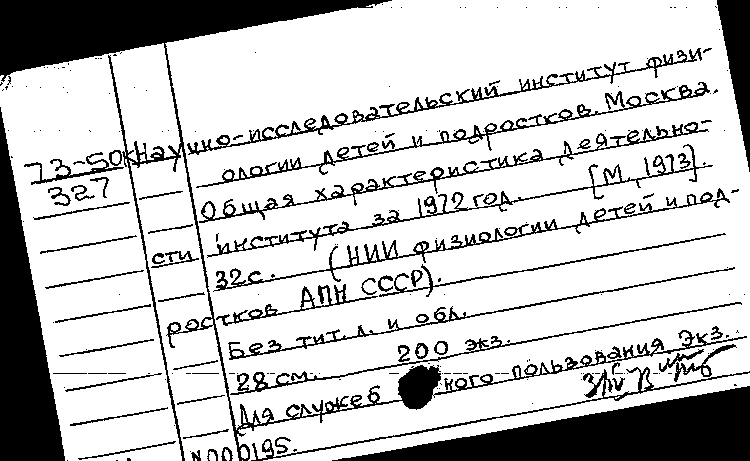 73-50к Научно-исследовательский институт физи-
327
ологии детей и подростков. Москва.
Общая характеристика деятельно-
сти института за 1972 год. [М., 1973].
32с. (НИИ физиологии детей и под-
ростков АПН СССР).
Без тит. л. и обл.
28 см. 200 экз.
Для служеб ного пользования Экз.
N000195.